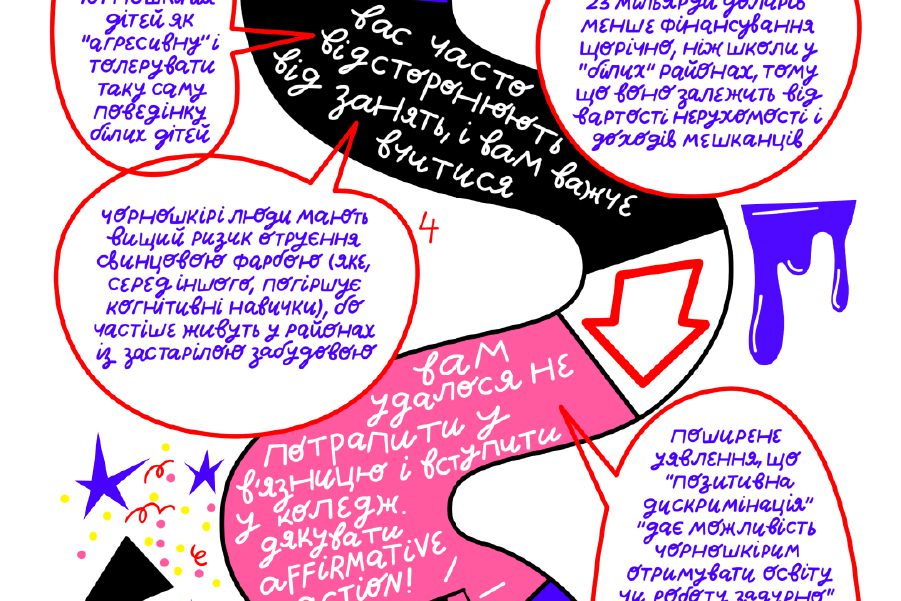 чорношкірих
дітей як
"агресивну" і
толерувати
таку саму
поведінку
білих дітей
вас часто
відсторонюють
від занять, і вам важче
вчитися
23 мільярди доларів
менше фінансування
щорічно, ніж школи у
"білих" районах, тому
що воно залежить від
вартості нерухомості і
доходів мешканців
чорношкірі люди мають
вищий ризик отруєння
свинцовою фарбою (яке,
серед іншого, погіршує
когнітивні навички), бо
частіше живуть у районах
із застарілою забудовою
4
вам
удалося не
потрапити у
в'язницю і вступити
у коледж.
дякувати
affirmative
action!
поширене
уявлення, що
"позитивна
дискримінація"
"дає можливість
чорношкірим
отримувати освіту
чи роботу задурно"